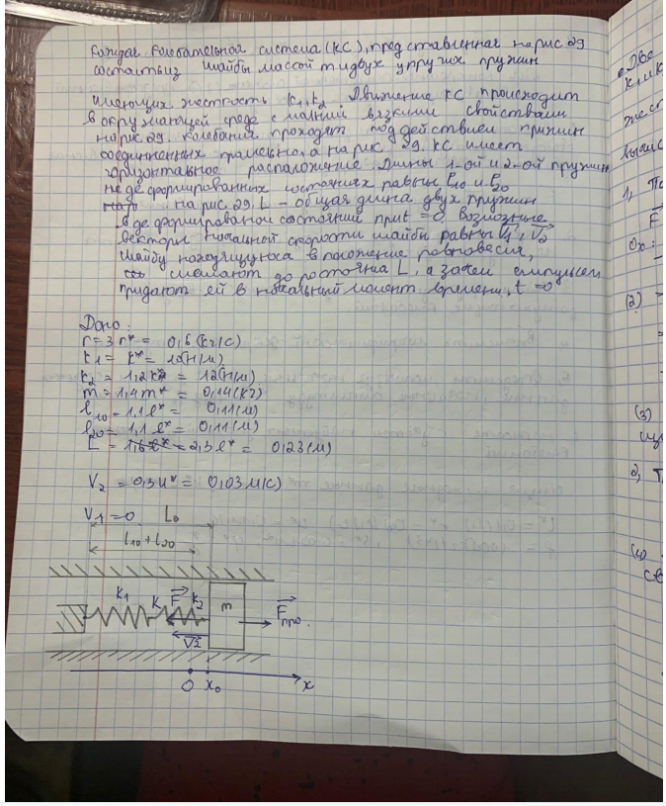 Каждая колебательная система (КС), представленная на рис 29
состоит из шайбы массой m и двух упругих пружин
имеющих жесткость k1, k2 Движение КС происходит
в окружающей среде с малыми вязкими свойствами
на рис 29. колебания проходят под действием пружин
соединенных , а на рис 29. КС имеет
горизонтальное расположение. Длины 1-ой и 2-ой пружин
недеформированных состояниях равны l10 и l20
на рис. 29. L - общая длина двух пружин
в деформированном состоянии при t = 0 Возможные
векторы начальной скорости шайбы равны V1, V2
Шайбу находящуюся в положение равновесия,
смещают до расстояна L, а затем импульсом
придают ей в начальный момент времени, t = 0
Дано:
r = 3 r* = 0,6 (кг/с)
k1 = k* = 10 (Н/м)
k2 = 1,2k* = 12 (Н/м)
m = 1,4m* = 0,14 (кг)
l10 = 1,1l* = 0,11 (м)
l20 = 1,1 l* = 0,11 (м)
L = 2,3 l* = 0,23 (м)
V2 = 0,3 u* = 0,03 м/с)
V1 = 0 L0
l10 + l20
k1 k F k2 m F
V2
0 x0 x